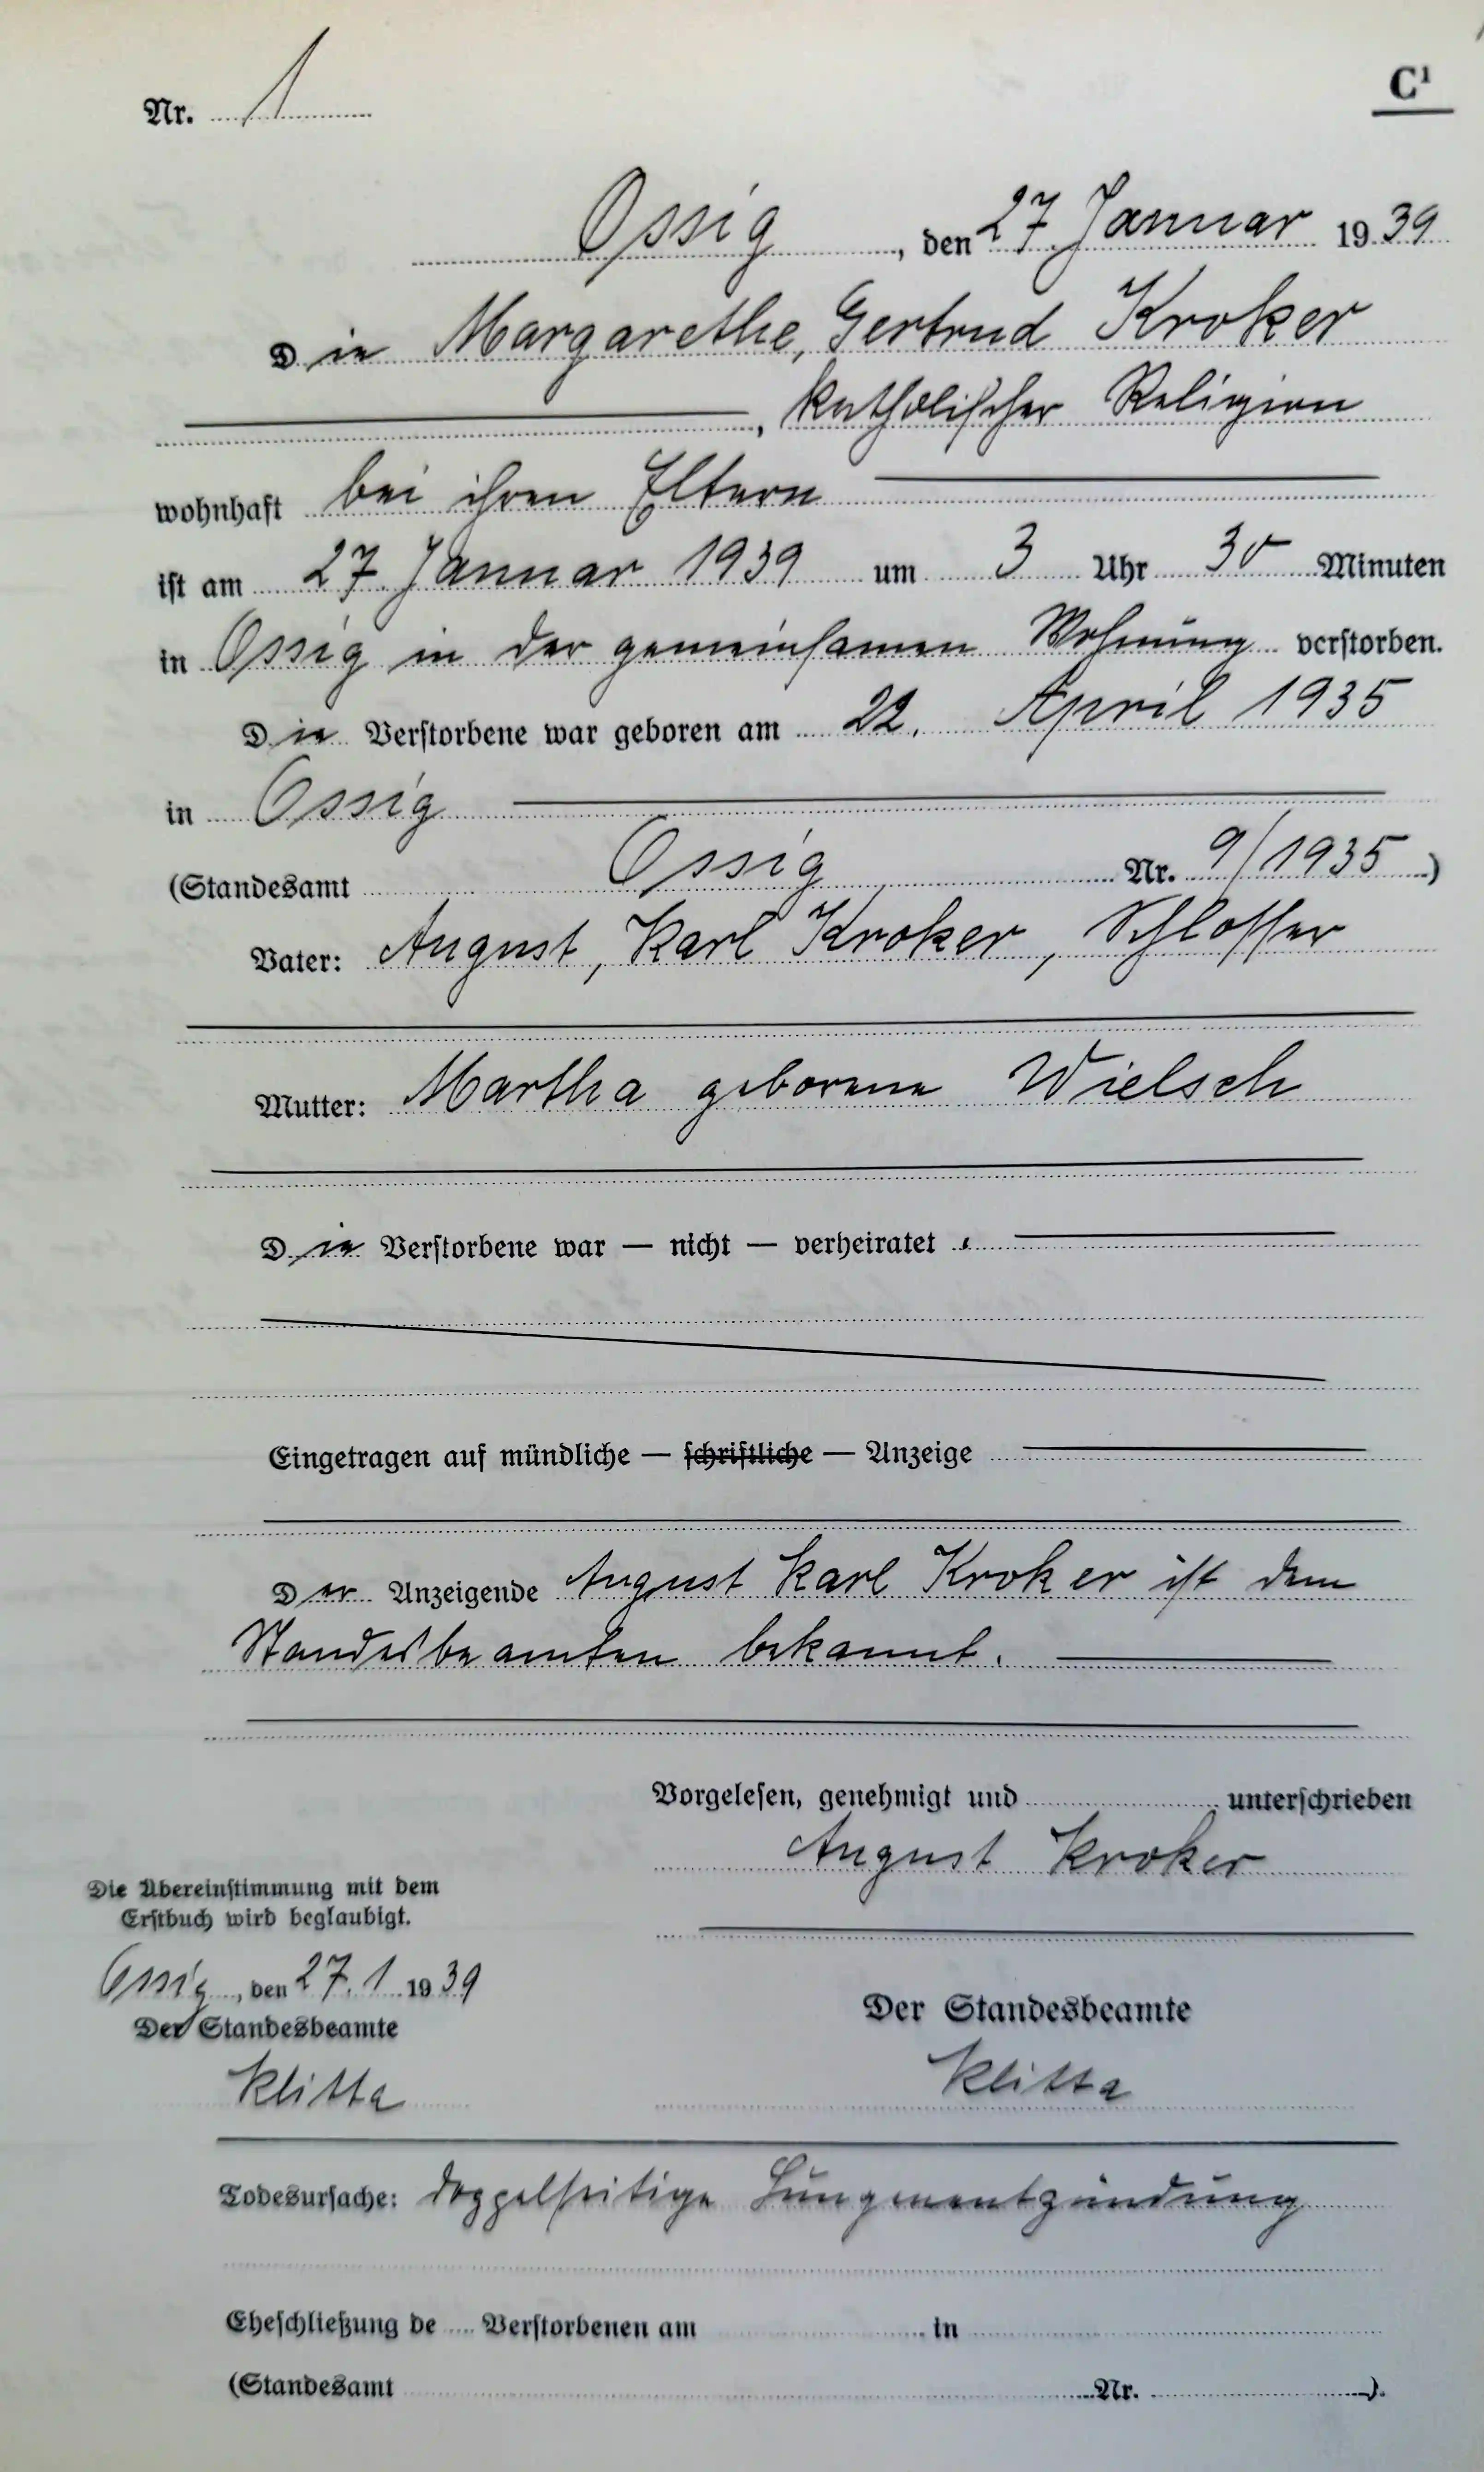 C¹
Nr. 1
Ossig, den 27. Januar 1939
Die Margarethe, Gertrud Kroker
, katholischer Religion
wohnhaft bei ihren Eltern
ist am 27. Januar 1939 um 3 Uhr 30 Minuten
in Ossig in der gemeinsamen Wohnung verstorben.
Die Verstorbene war geboren am 22. April 1935
in Ossig
(Standesamt Ossig Nr. 9/1935)
Vater: August, Karl Kroker, Schlosser
Mutter: Martha geborene Wielsch
Die Verstorbene war — nicht — verheiratet.
Eingetragen auf mündliche — schriftliche — Anzeige
Der Anzeigende August Karl Kroker ist dem
Standesbeamten bekannt.
Vorgelesen, genehmigt und unterschrieben
August Kroker
Die Übereinstimmung mit dem
Erstbuch wird beglaubigt.
Ossig, den 27.1.1939
Der Standesbeamte
Klitta
Der Standesbeamte
Klitta
Todesursache: doppelseitige Lungenentzündung
Eheschließung de Verstorbenen am in
(Standesamt Nr. ).